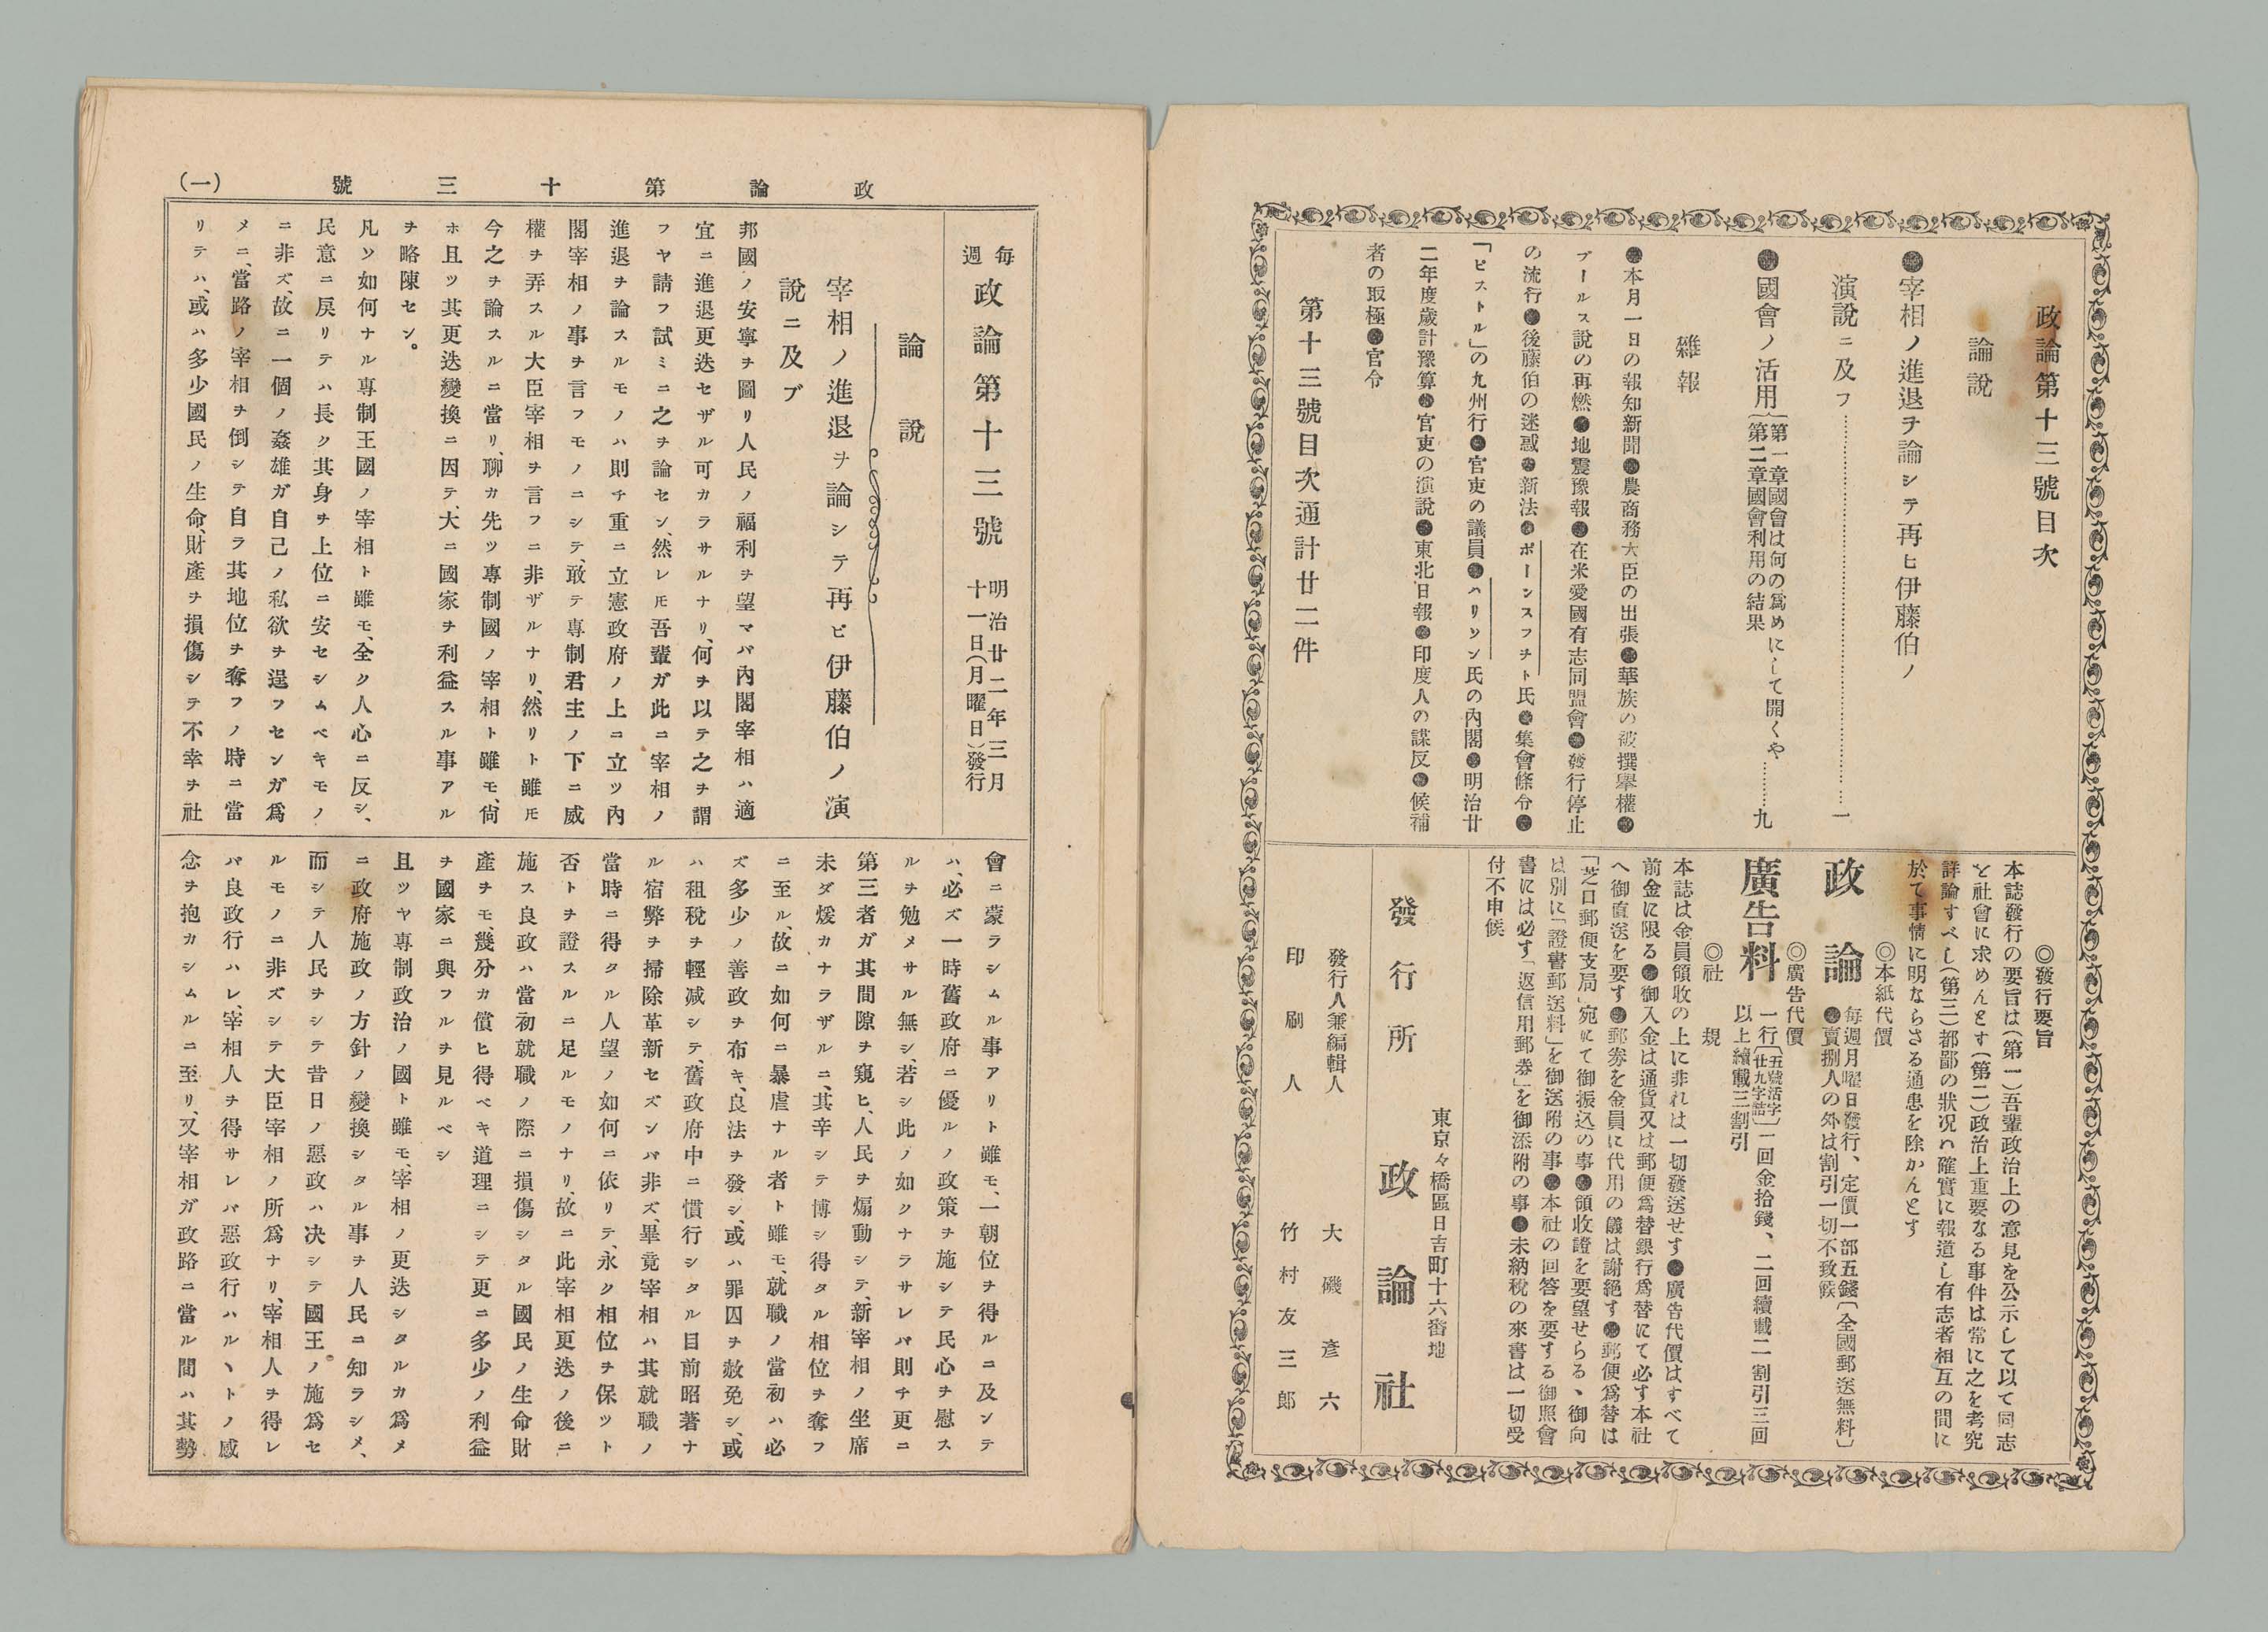 政論第十三號目次
論說
●宰相ノ進退ヲ論シテ再ヒ伊藤伯ノ
演說ニ及フ……………………一
●國會ノ活用
第一章國會は何の爲めにして開くや………九
第二章國會利用の結果
雜報
●本月一日の報知新聞●農商務大臣の出張●華族の被撰擧權●
ブールス說の再燃●地震豫報●在米愛國有志同盟會●發行停止
の流行●後藤伯の迷惑●新法●ボーンスフヲト氏●集會條令●
「ピストル」の九州行●官吏の議員●ハリソン氏の內閣●明治廿
二年度歲計豫算●官吏の演說●東北日報●印度人の謀反●候補
者の取極●官令
第十三號目次通計廿二件
◎發行要旨
本誌發行の要旨は(第一)吾輩政治上の意見を公示して以て同志
を社會に求めんとす(第二)政治上重要なる事件は常に之を考究
詳論すべし(第三)都鄙の狀况を確實に報道し有志者相互の間に
於て事情に明ならさる通患を除かんとす
◎本紙代價
政論
每週月曜日發行、定價一部五錢〔全國郵送無料〕
●賣捌人の外は割引一切不致候
◎廣告代價
廣告料
一行〔五號活字廿九字詰〕一回金拾錢、二回續載二割引三回
以上續載三割引
◎社規
本誌は金員領收の上に非れは一切發送せす●廣告代價はすべて
前金に限る●御入金は通貨又は郵便爲替銀行爲替にて必す本社
へ御直送を要す●郵券を金員に代用の儀は謝絕す●郵便爲替は
「芝口郵便支局」宛にて御振込の事●領收證を要望せらるゝ御向
は別に「證書郵送料」を御送附の事●本社の回答を要する御照會
書には必す「返信用郵券」を御添附の事●未納稅の來書は一切受
付不申候
東京々橋區日吉町十六番地
發行所 政論社
發行人兼編輯人 大磯彥六
印刷人 竹村友三郎
政論第十三號 (一)
每週 政論第十三號 明治廿二年三月十一日(月曜日)發行
論說
宰相ノ進退ヲ論シテ再ビ伊藤伯ノ演
說ニ及ブ
邦國ノ安寧ヲ圖リ人民ノ福利ヲ望マバ內閣宰相ハ適
宜ニ進退更迭セザル可カラサルナリ、何ヲ以テ之ヲ謂
フヤ請フ試ミニ之ヲ論セン、然レ𪜈吾輩ガ此ニ宰相ノ
進退ヲ論スルモノハ則チ重ニ立憲政府ノ上ニ立ツ內
閣宰相ノ事ヲ言フモノニシテ、敢テ專制君主ノ下ニ威
權ヲ弄スル大臣宰相ヲ言フニ非ザルナリ、然リト雖𪜈
今之ヲ論スルニ當リ、聊カ先ツ專制國ノ宰相ト雖モ、尙
ホ且ツ其更迭變換ニ因テ、大ニ國家ヲ利益スル事アル
ヲ略陳セン。
凡ソ如何ナル專制王國ノ宰相ト雖モ、全ク人心ニ反シ、
民意ニ戾リテハ長ク其身ヲ上位ニ安セシムベキモノ
ニ非ズ、故ニ一個ノ姦雄ガ自己ノ私欲ヲ逞フセンガ爲
メニ、當路ノ宰相ヲ倒シテ自ラ其地位ヲ奪フノ時ニ當
リテハ、或ハ多少國民ノ生命、財產ヲ損傷シテ不幸ヲ社
會ニ蒙ラシムル事アリト雖モ、一朝位ヲ得ルニ及ンテ
ハ、必ズ一時舊政府ニ優ルノ政策ヲ施シテ民心ヲ慰ス
ルヲ勉メサル無シ、若シ此ノ如クナラサレバ則チ更ニ
第三者ガ其間隙ヲ窺ヒ、人民ヲ煽動シテ、新宰相ノ坐席
未ダ煖カナラザルニ、其辛シテ博シ得タル相位ヲ奪フ
ニ至ル、故ニ如何ニ暴虐ナル者ト雖モ、就職ノ當初ハ必
ズ多少ノ善政ヲ布キ、良法ヲ發シ、或ハ罪囚ヲ赦免シ、或
ハ租稅ヲ輕减シテ、舊政府中ニ慣行シタル目前昭著ナ
ル宿弊ヲ掃除革新セズンバ非ズ、畢竟宰相ハ其就職ノ
當時ニ得タル人望ノ如何ニ依リテ、永ク相位ヲ保ツト
否トヲ證スルニ足ルモノナリ、故ニ此宰相更迭ノ後ニ
施ス良政ハ當初就職ノ際ニ損傷シタル國民ノ生命財
產ヲモ、幾分カ償ヒ得ベキ道理ニシテ更ニ多少ノ利益
ヲ國家ニ與フルヲ見ルベシ
且ツヤ專制政治ノ國ト雖モ、宰相ノ更迭シタルカ爲メ
ニ政府施政ノ方針ノ變換シタル事ヲ人民ニ知ラシメ、
而シテ人民ヲシテ昔日ノ惡政ハ决シテ國王ノ施爲セ
ルモノニ非ズシテ大臣宰相ノ所爲ナリ、宰相人ヲ得レ
バ良政行ハレ、宰相人ヲ得サレバ惡政行ハルヽトノ感
念ヲ抱カシムルニ至リ、又宰相ガ政路ニ當ル間ハ其勢